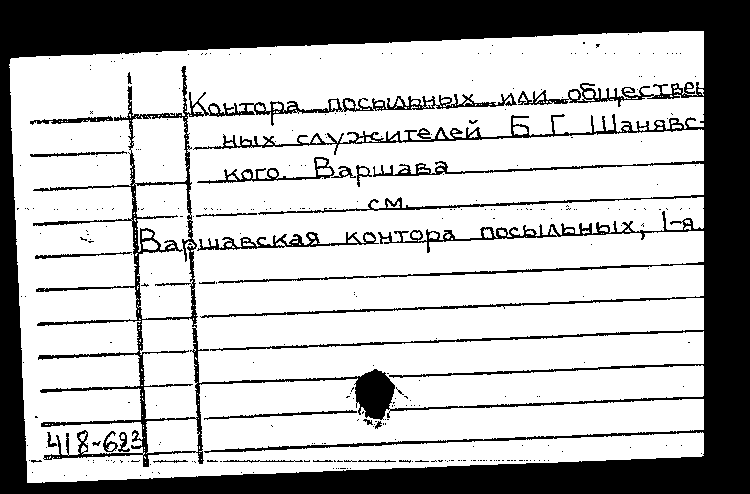 Контора посыльных или обществен
ных служителей Б. Г. Шанявс-
кого. Варшава
см.
Варшавская контора посыльных, 1-я.
418-622